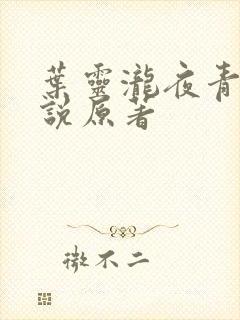 葉靈瀧夜青
說原著
微不二